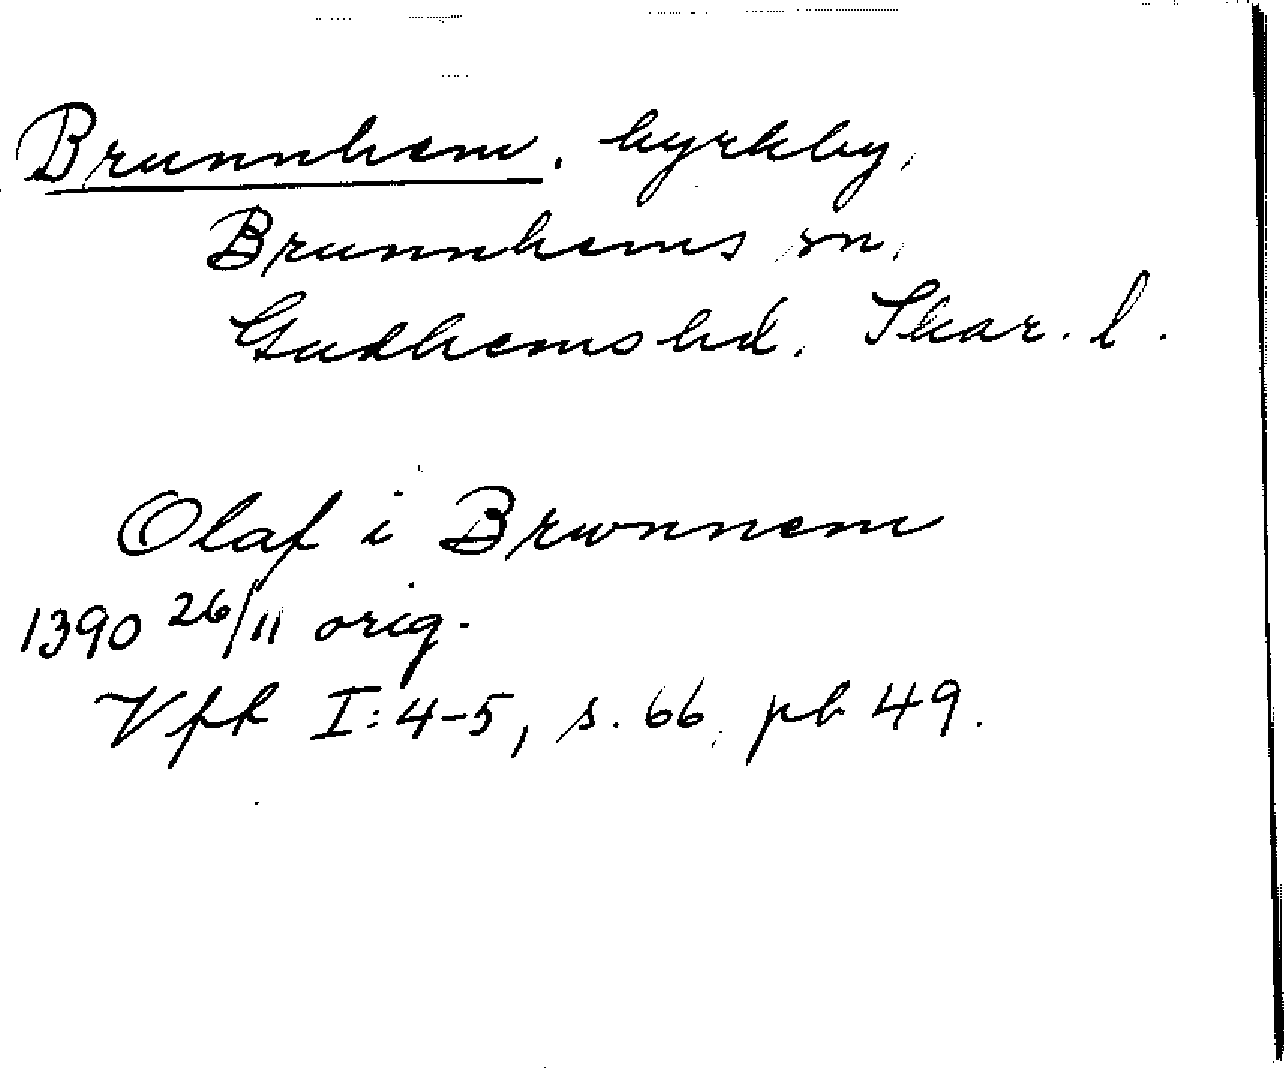 Brunnhem, kyrkby,
Brunnhems sn,
Gudhems hd, Skar. l.
Olaf i Brwnnem
1390 26/11 orig.
Vfk I:4-5, s. 66, pb 49.